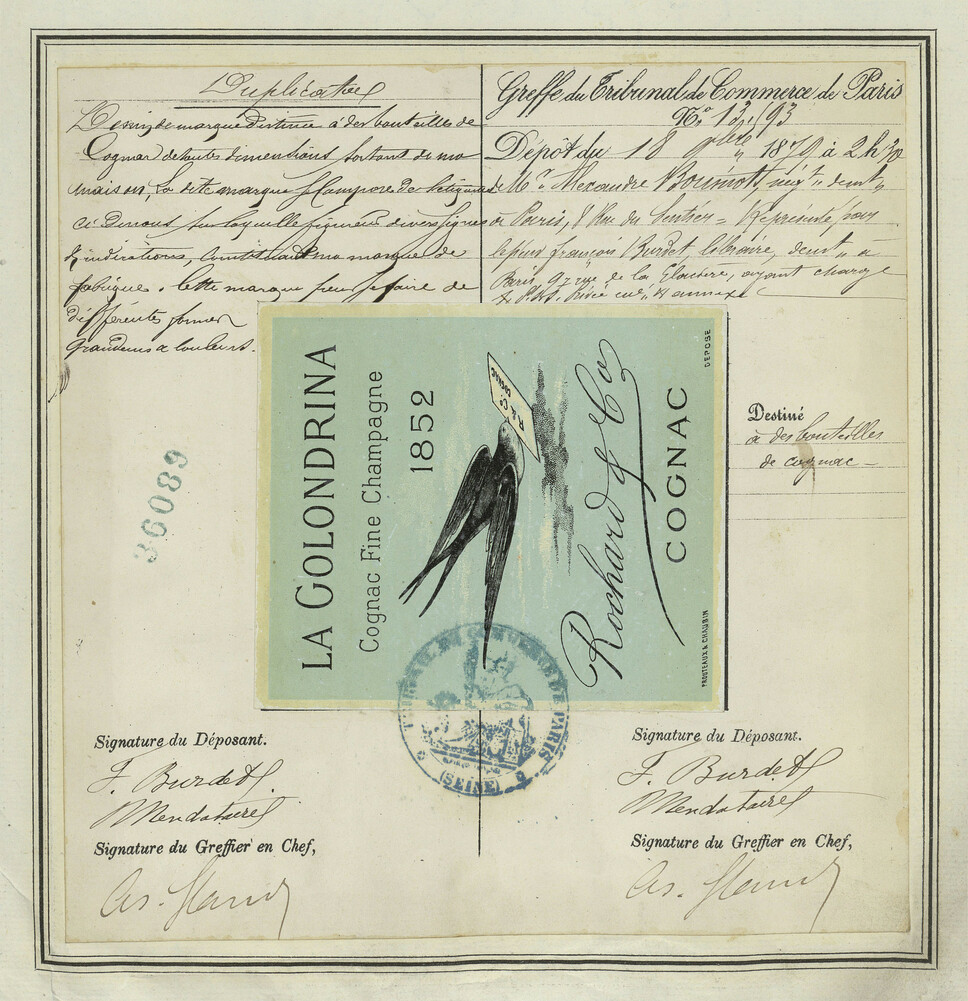 Duplicata
Dessin de marque destinée à des bouteilles de
Cognac de toutes dimentions sortant de ma
maison, La dite marque se compose de
ci dessous sur laquelle figurent divers signes
& indications, constituant ma marque de
fabrique. Cette marque peu se faire de
différentes formes
grandeurs & couleurs.
Greffe du Tribunal de Commerce de Paris
No. 13.193
Dépôt du 18 8bre 1879 à 2h 30
Mr. Alexandre négt. demt.
à Paris, 8 Rue du Sentier = Représenté par
le sieur françois Burdet, libraire, demt. à
Paris 97 rue de la Glacière, ayant charge
annexé
36089
LA GOLONDRINA
Cognac Fine Champagne
1852
R. & Co.
COGNAC
Rochard & Co
COGNAC
DÉPOSÉ
PROUTEAUX & CHAUBIN
Destiné
à des bouteilles
de cognac
TRIBUNAL DE COMMERCE DE PARIS
(SEINE)
Signature du Déposant.
F. Burdet
Mendataire
Signature du Greffier en Chef,
Signature du Déposant.
F. Burdet
Mendataire
Signature du Greffier en Chef,